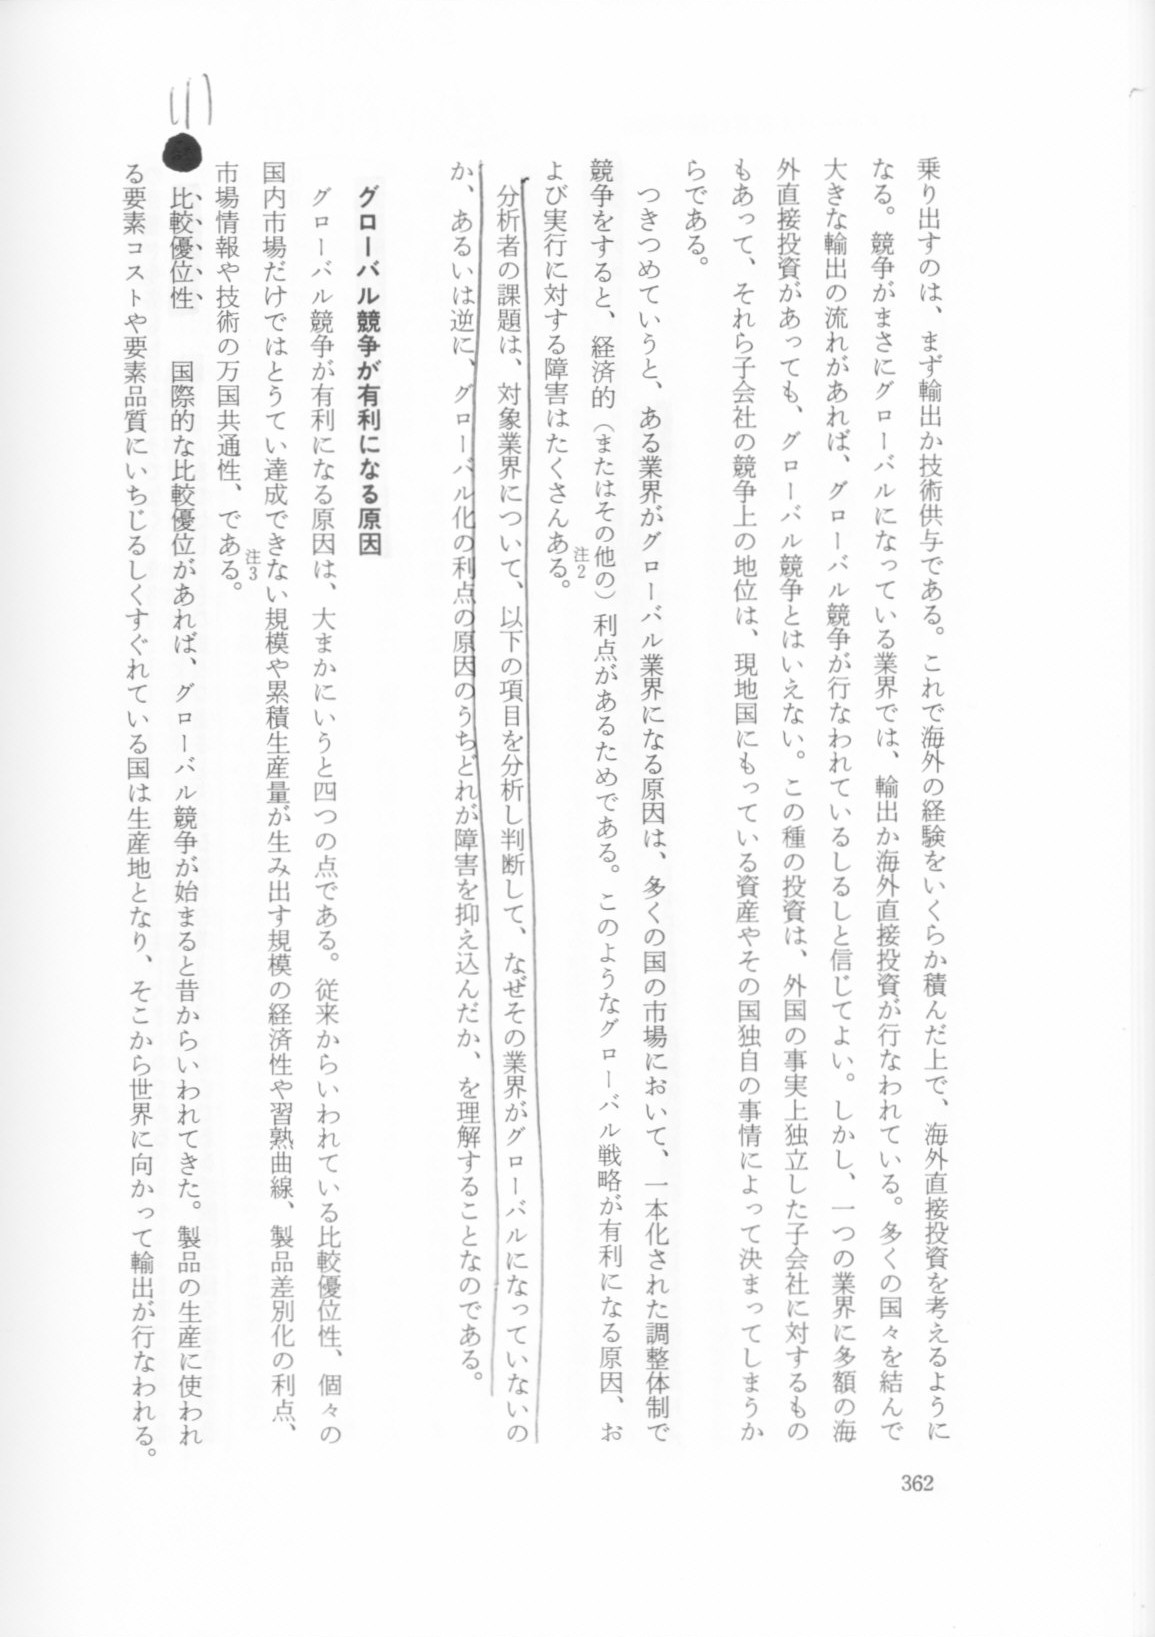 乗り出すのは、まず輸出か技術供与である。これで海外の経験をいくらか積んだ上で、海外直接投資を考えるように
なる。競争がまさにグローバルになっている業界では、輸出か海外直接投資が行なわれている。多くの国々を結んで
大きな輸出の流れがあれば、グローバル競争が行なわれているしるしと信じてよい。しかし、一つの業界に多額の海
外直接投資があっても、グローバル競争とはいえない。この種の投資は、外国の事実上独立した子会社に対するもの
もあって、それら子会社の競争上の地位は、現地国にもっている資産やその国独自の事情によって決まってしまうか
らである。
つきつめていうと、ある業界がグローバル業界になる原因は、多くの国の市場において、一本化された調整体制で
競争をすると、経済的（またはその他の）利点があるためである。このようなグローバル戦略が有利になる原因、お
よび実行に対する障害はたくさんある。注2
分析者の課題は、対象業界について、以下の項目を分析し判断して、なぜその業界がグローバルになっていないの
か、あるいは逆に、グローバル化の利点の原因のうちどれが障害を抑え込んだか、を理解することなのである。
グローバル競争が有利になる原因
グローバル競争が有利になる原因は、大まかにいうと四つの点である。従来からいわれている比較優位性、個々の
国内市場だけではとうてい達成できない規模や累積生産量が生み出す規模の経済性や習熟曲線、製品差別化の利点、
市場情報や技術の万国共通性、である。注3
(1)
比較優位性　国際的な比較優位があれば、グローバル競争が始まると昔からいわれてきた。製品の生産に使われ
る要素コストや要素品質にいちじるしくすぐれている国は生産地となり、そこから世界に向かって輸出が行なわれる。
362